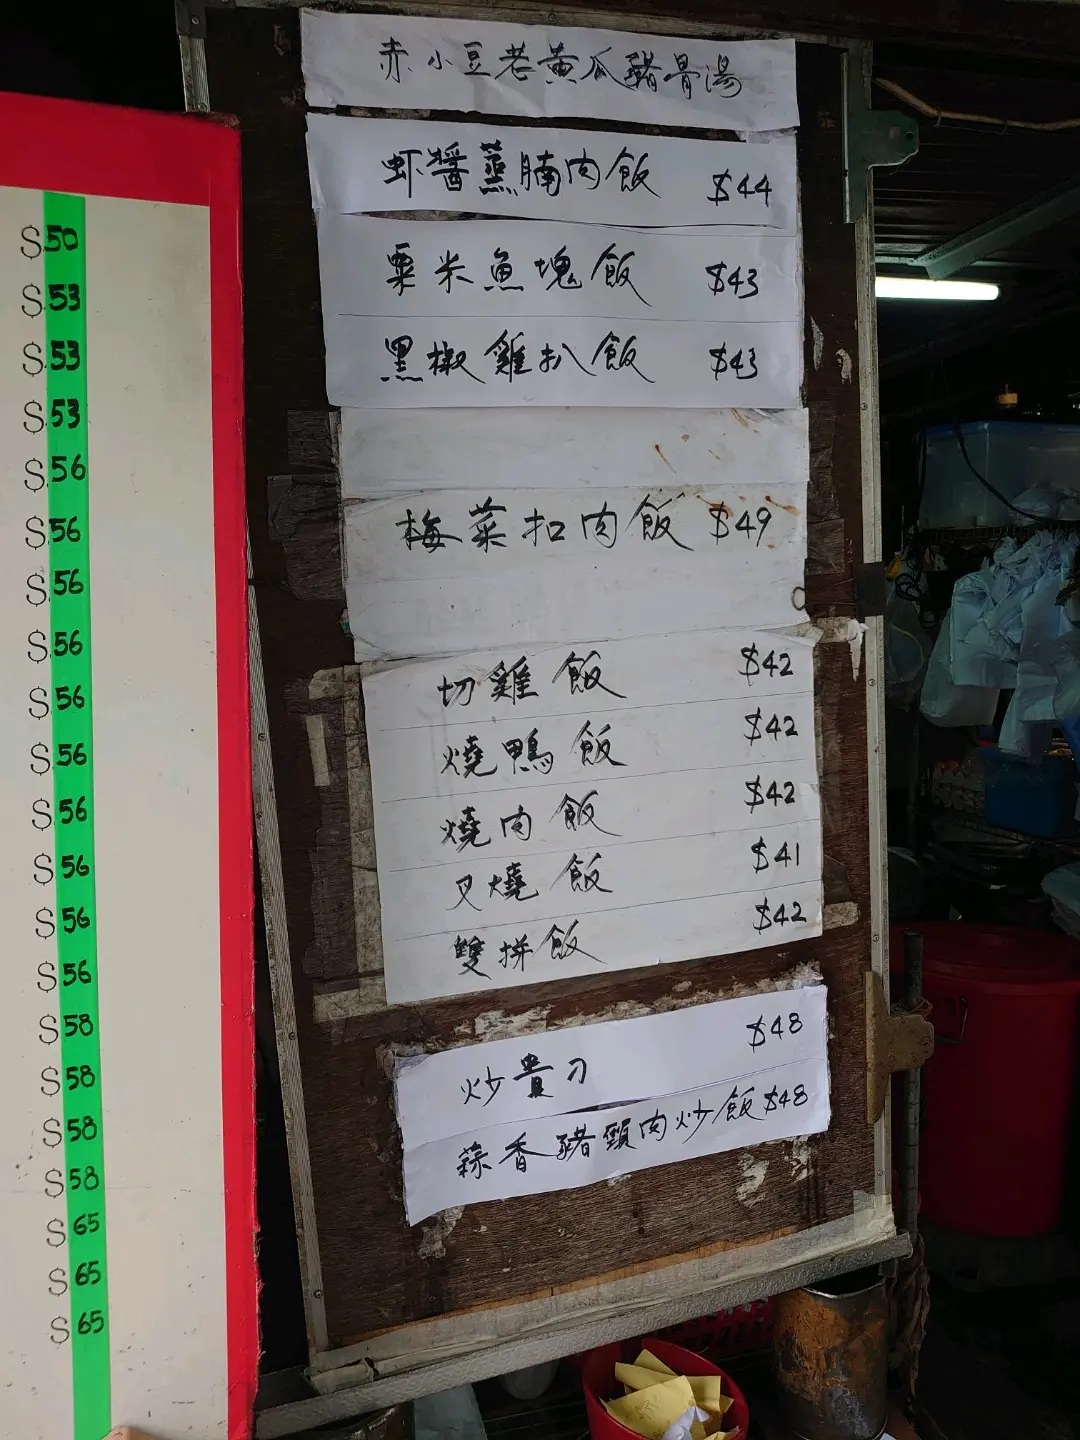 赤小豆老黃瓜豬骨湯
虾醬蒸腩肉飯 $44
粟米魚塊飯 $43
黑椒雞扒飯 $43
梅菜扣肉飯 $49
切雞飯 $42
燒鴨飯 $42
燒肉飯 $42
叉燒飯 $41
雙拼飯 $42
炒貴刁 $48
蒜香豬頸肉炒飯 $48
$50
$53
$53
$53
$56
$56
$56
$56
$56
$56
$56
$56
$56
$56
$58
$58
$58
$58
$65
$65
$65